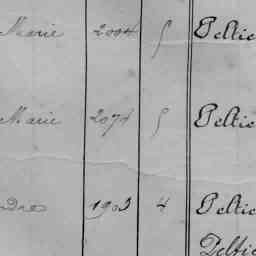 Marie 2004 5 Peltie
Marie 2074 5 Peltie
dre 1903 4 Peltie
Peltie